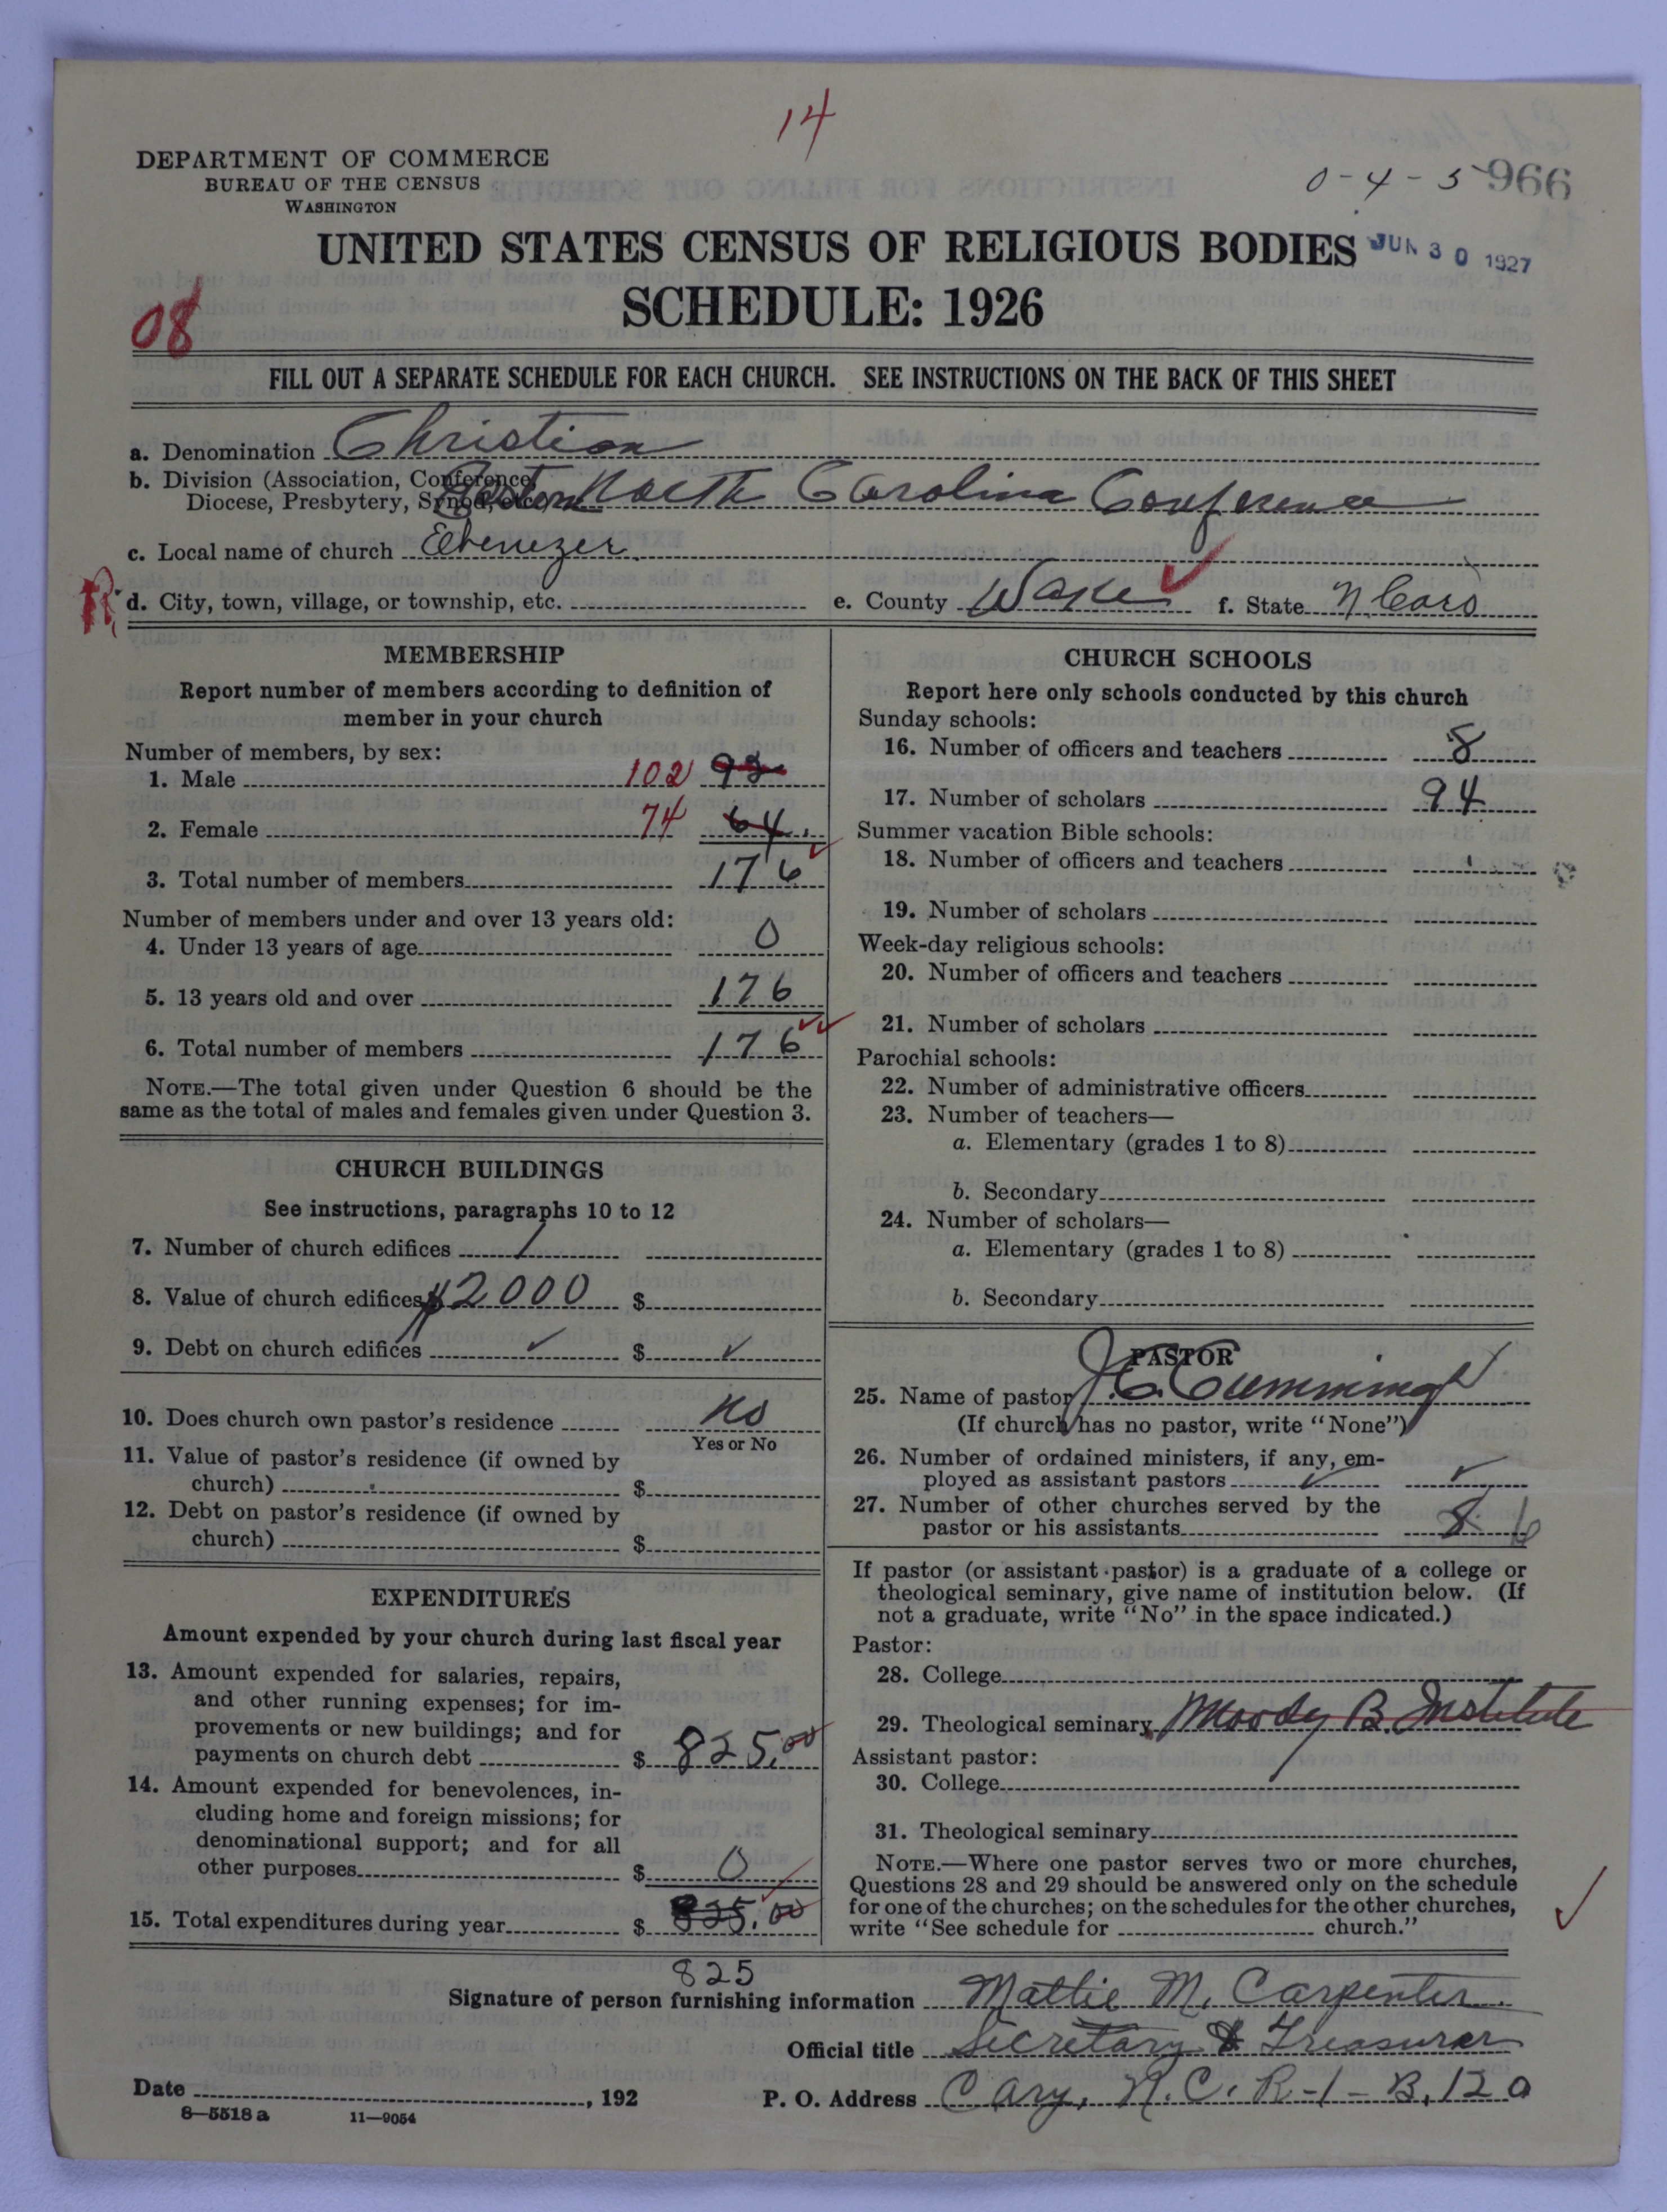 14
DEPARTMENT OF COMMERCE
BUREAU OF THE CENSUS
WASHINGTON
0-4-5 966
UNITED STATES CENSUS OF RELIGIOUS BODIES
JUN 30 1927
SCHEDULE: 1926
08
FILL OUT A SEPARATE SCHEDULE FOR EACH CHURCH. SEE INSTRUCTIONS ON THE BACK OF THIS SHEET
a. Denomination Christian
b. Division (Association, Conference,
Diocese, Presbytery, Synod, etc.) Eastern North Carolina Conference
c. Local name of church Ebenezer
R d. City, town, village, or township, etc. e. County Wake f. State N Caro
MEMBERSHIP
Report number of members according to definition of
member in your church
Number of members, by sex:
1. Male 102
2. Female 74 64
3. Total number of members 176
Number of members under and over 13 years old:
4. Under 13 years of age 0
5. 13 years old and over 176
6. Total number of members 176
NOTE.—The total given under Question 6 should be the
same as the total of males and females given under Question 3.
CHURCH BUILDINGS
See instructions, paragraphs 10 to 12
7. Number of church edifices 1
8. Value of church edifices $2000 $
9. Debt on church edifices ✓ $ ✓
10. Does church own pastor's residence No
Yes or No
11. Value of pastor's residence (if owned by
church) $
12. Debt on pastor's residence (if owned by
church) $
EXPENDITURES
Amount expended by your church during last fiscal year
13. Amount expended for salaries, repairs,
and other running expenses; for im-
provements or new buildings; and for
payments on church debt $ 825.00
14. Amount expended for benevolences, in-
cluding home and foreign missions; for
denominational support; and for all
other purposes $ 0
15. Total expenditures during year $ 825.00
825
CHURCH SCHOOLS
Report here only schools conducted by this church
Sunday schools:
16. Number of officers and teachers 8
17. Number of scholars 94
Summer vacation Bible schools:
18. Number of officers and teachers
19. Number of scholars
Week-day religious schools:
20. Number of officers and teachers
21. Number of scholars
Parochial schools:
22. Number of administrative officers
23. Number of teachers—
a. Elementary (grades 1 to 8)
b. Secondary
24. Number of scholars—
a. Elementary (grades 1 to 8)
b. Secondary
PASTOR
25. Name of pastor J.C. Cummings
(If church has no pastor, write "None")
26. Number of ordained ministers, if any, em-
ployed as assistant pastors ✓ ✓
27. Number of other churches served by the
pastor or his assistants 8 6
If pastor (or assistant pastor) is a graduate of a college or
theological seminary, give name of institution below. (If
not a graduate, write "No" in the space indicated.)
Pastor:
28. College
29. Theological seminary Moody B. Institute
Assistant pastor:
30. College
31. Theological seminary
NOTE.—Where one pastor serves two or more churches,
Questions 28 and 29 should be answered only on the schedule
for one of the churches; on the schedules for the other churches,
write "See schedule for church."
Signature of person furnishing information Mattie M. Carpenter
Official title Secretary & Treasurer
Date , 192 P. O. Address Cary, N.C. R-1-B.120
8—5518 a 11—9054